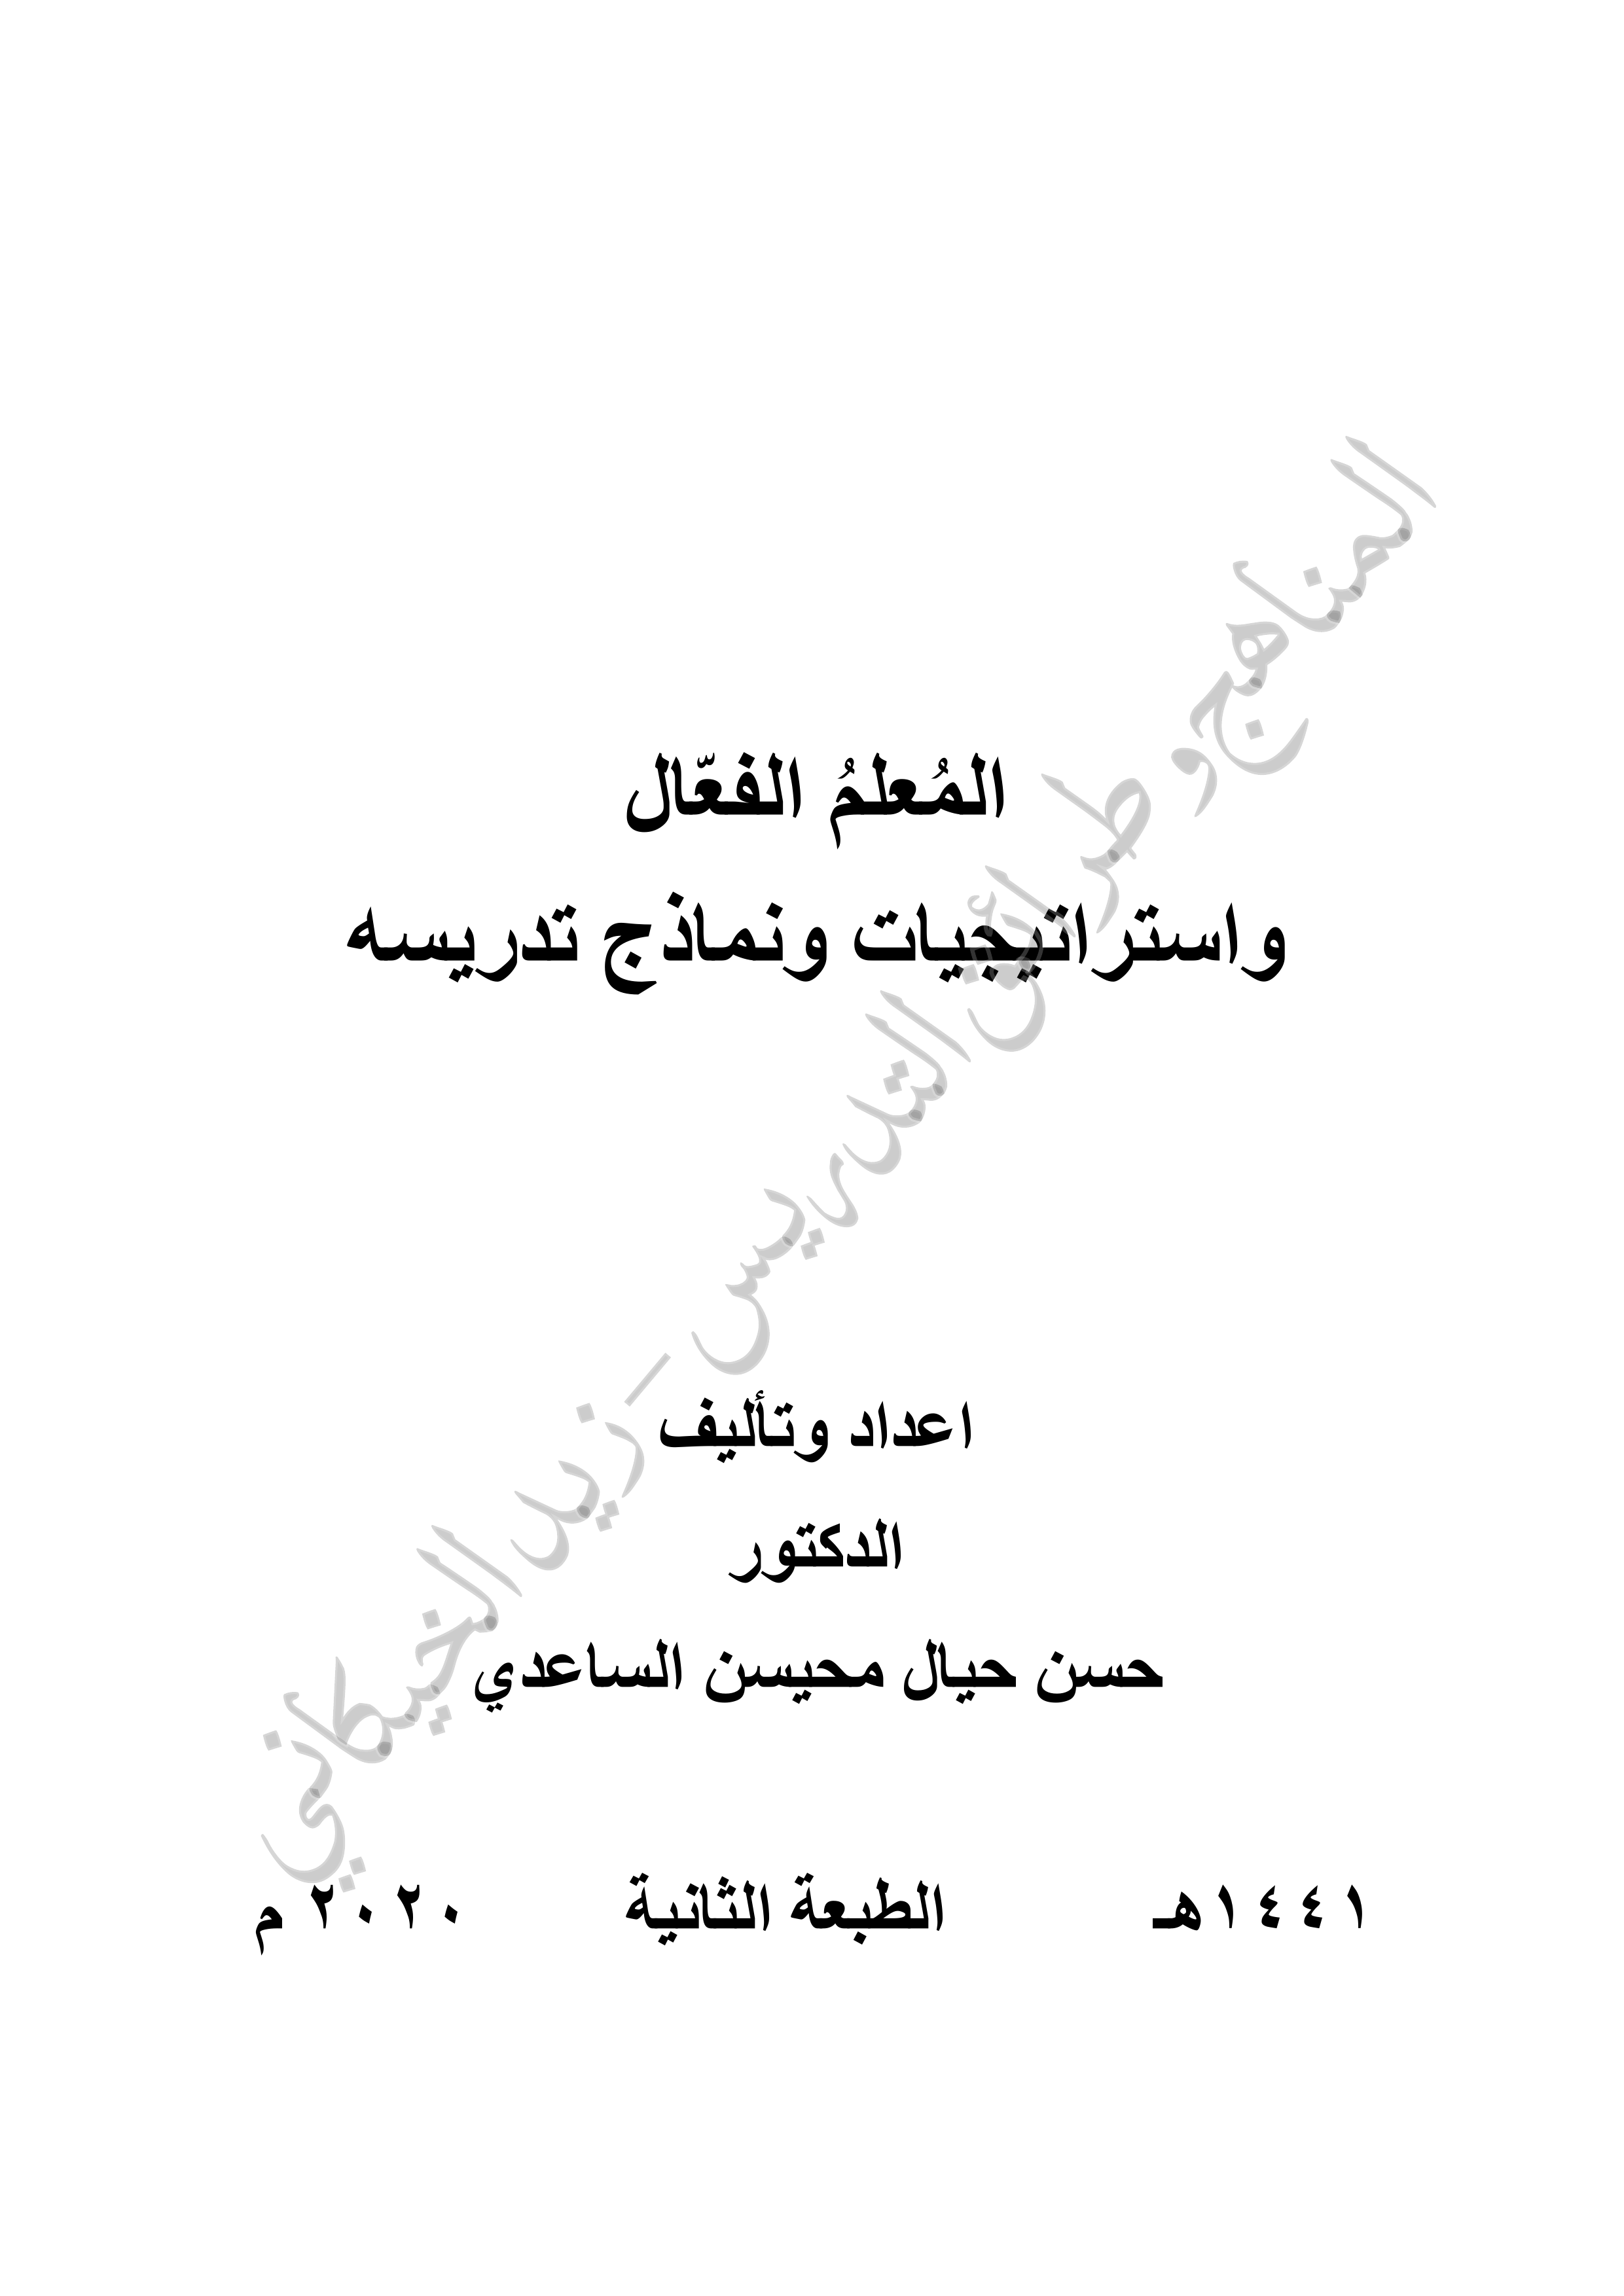 المُعلمُ الفعّال
واستراتيجيات ونماذج تدريسه
اعداد وتأليف
الدكتور
حسن حيال محيسن الساعدي
١٤٤١هـ الطبعة الثانية ٢٠٢٠ م
المناهج وطرائق التدريس – زيد الخيكاني